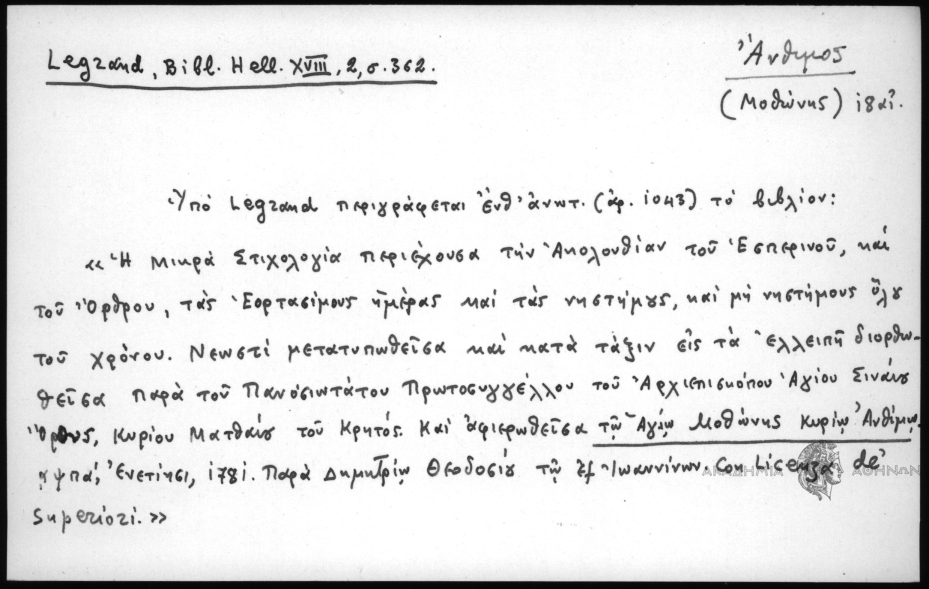 Legrand, Bibl. Hell. XVIII, 2, σ. 362.
Ἄνθιμος
(Μοθώνης) ι8αἰ.
Ὑπό Legrand περιγράφεται ἐνθ' ἀνωτ. (ἀρ. 1043) τό βιβλίον:
« Ἡ Μικρά Στιχολογία περιέχουσα τήν Ἀκολουθίαν τοῦ Ἑσπερινοῦ, καί
τοῦ Ὄρθρου, τάς Ἑορτασίμους ἡμέρας καί τάς νηστήμους, καί μή νηστήμους ὅλου
τοῦ χρόνου. Νεωστί μετατυπωθεῖσα καί κατά τάξιν εἰς τά Ἐλλειπῆ διορθω-
θεῖσα παρά τοῦ Πανοσιντάτου Πρωτοσυγγέλλου τοῦ Ἀρχιεπισκόπου Ἁγίου Σιναίου
Ὄρους, Κυρίου Ματθαίου τοῦ Κρητός. Καί ἀφιερωθεῖσα τῷ Ἁγίῳ Μοθώνης Κυρίῳ Ἀνθίμῳ.
αψπα, Ἐνετίησι, 1781. Παρά Δημητρίῳ Θεοδοσίου τῷ ἐξ Ἰωαννίνων. Con Licenza de'
Superiori. »
ΑΚΑΔΗΜΙΑ ΑΘΗΝΩΝ